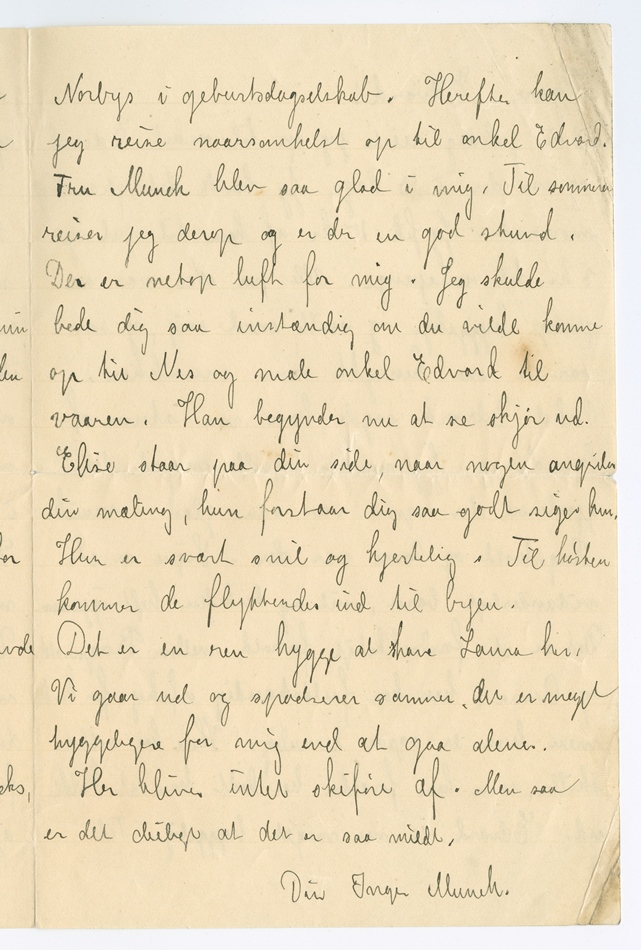 Norbys i geburtsdagselskab. Herefter kan
jeg reise naarsomhelst op til onkel Edvard.
Fru Munch blev saa glad i mig. Til sommeren
reiser jeg derop og er der en god stund.
Der er netop luft for mig. Jeg skulde
bede dig saa instændig om du vilde komme
op til Nes og male onkel Edvard til
vaaren. Han begynder nu at se skjør ud.
Elise staar paa din side, naar nogen angriber
din maling, hun forstaar dig saa godt siger hun.
Hun er svært snil og hjertelig. Til høsten
kommer de flyttendes ind til byen.
Det er en ren hygge at have Laura her.
Vi gaar ud og spadserer sammen, det er meget
hyggeligere for mig end at gaa alene.
Her bliver intet skiføre af. Men saa
er det deiligt at det er saa mildt.
Din Inger Munch.